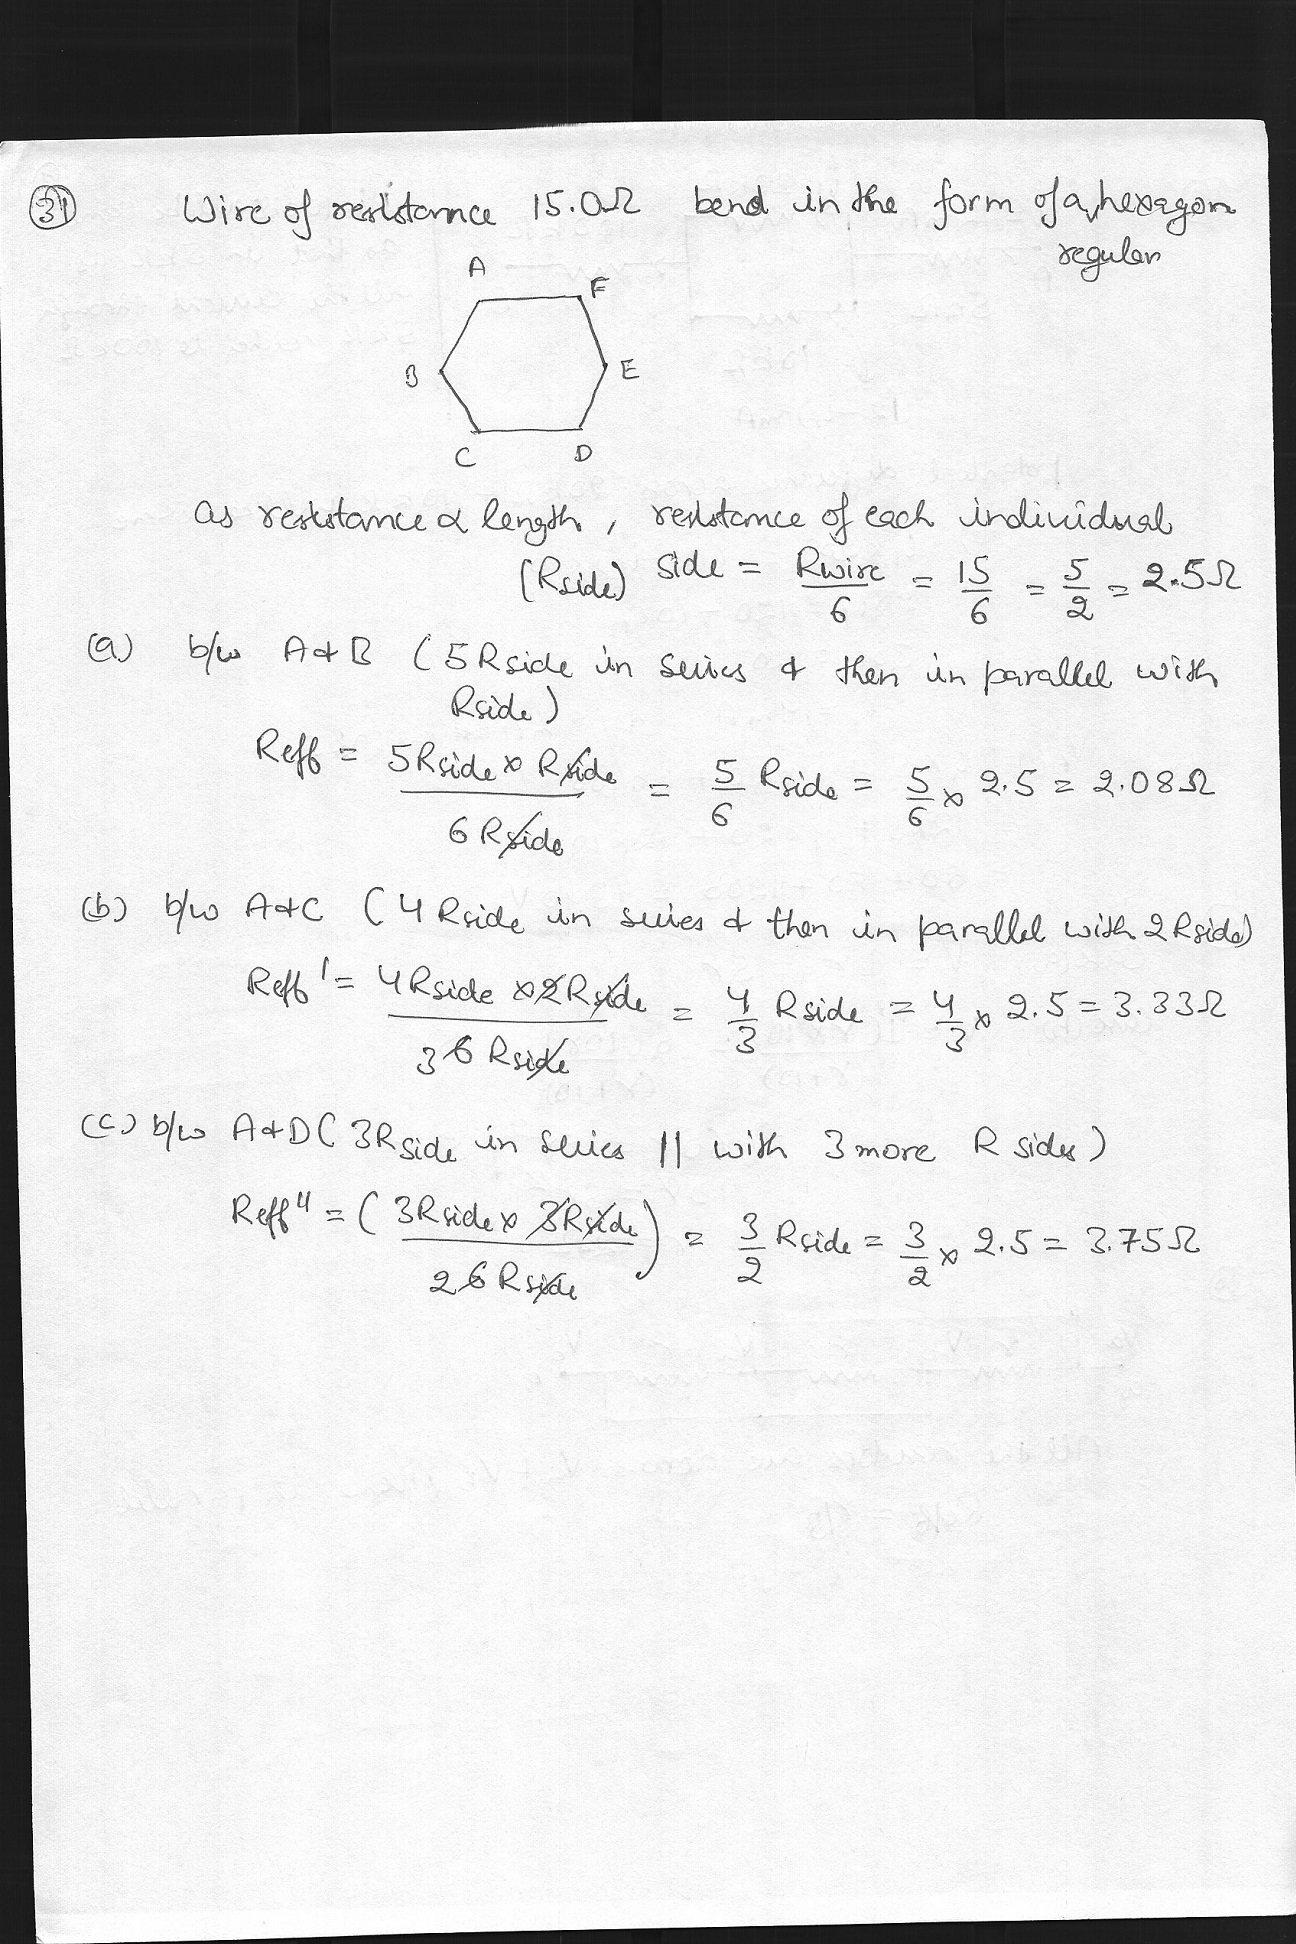 31 Wire of resistance 15.0Ω bend in the form of a hexagon
regular
A
F
B
E
C
D
as resistance ∝ length, resistance of each individual
(Rside) side = Rwire/6 = 15/6 = 5/2 = 2.5Ω
(a) b/w A & B (5 Rside in series & then in parallel with
Rside)
Reff = 5Rside × Rside / 6 Rside = 5/6 Rside = 5/6 × 2.5 = 2.08Ω
(b) b/w A & C (4 Rside in series & then in parallel with 2 Rside)
Reff' = 4Rside × 2Rside / 3 6 Rside = 4/3 Rside = 4/3 × 2.5 = 3.33Ω
(c) b/w A & D (3Rside in series || with 3 more R sides)
Reff" = (3Rside × 3Rside / 2 6 Rside) = 3/2 Rside = 3/2 × 2.5 = 3.75Ω